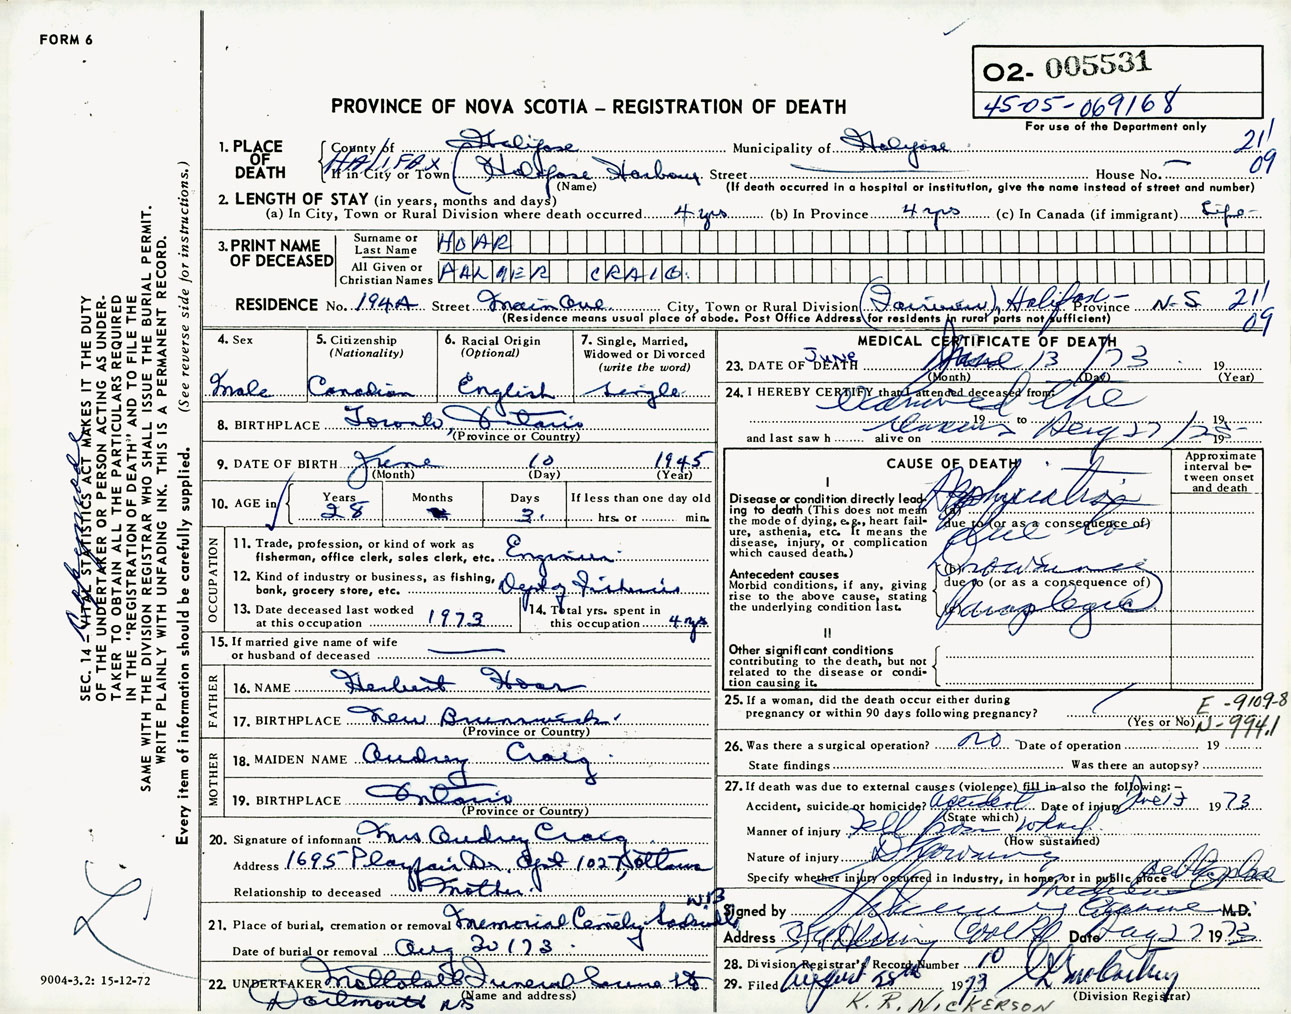 FORM 6
O2- 005531
45-05-069168
For use of the Department only
PROVINCE OF NOVA SCOTIA – REGISTRATION OF DEATH
1. PLACE OF DEATH
County of Halifax Municipality of Halifax 211
HALIFAX
If in City or Town (Halifax Harbour Street House No. — 09
(Name) (If death occurred in a hospital or institution, give the name instead of street and number)
2. LENGTH OF STAY (in years, months and days)
(a) In City, Town or Rural Division where death occurred 4 yrs (b) In Province 4 yrs (c) In Canada (if immigrant) Life
3. PRINT NAME OF DECEASED
Surname or Last Name HOAR
All Given or Christian Names CRAIG
RESIDENCE No. 194A Street Main Ave City, Town or Rural Division (Fairview), Halifax Province N-S 211
(Residence means usual place of abode. Post Office Address for residents in rural parts not sufficient) 09
4. Sex
Male
5. Citizenship (Nationality)
Canadian
6. Racial Origin (Optional)
English
7. Single, Married, Widowed or Divorced (write the word)
Single
8. BIRTHPLACE Toronto, Ontario
(Province or Country)
9. DATE OF BIRTH June 10 1945
(Month) (Day) (Year)
10. AGE in Years Months Days If less than one day old
28 3. hrs. or min.
OCCUPATION
11. Trade, profession, or kind of work as fisherman, office clerk, sales clerk, etc. Engineer
12. Kind of industry or business, as fishing, bank, grocery store, etc. Dept of Fisheries
13. Date deceased last worked at this occupation 1973
14. Total yrs. spent in this occupation 4 yrs
15. If married give name of wife or husband of deceased —
FATHER
16. NAME Herbert Hoar
17. BIRTHPLACE New Brunswick
(Province or Country)
MOTHER
18. MAIDEN NAME Audrey Craig
19. BIRTHPLACE Ontario
(Province or Country)
20. Signature of informant Mrs Audrey Craig
Address 1695 Playfair Dr. Apt 1027 Ottawa
Relationship to deceased Mother
21. Place of burial, cremation or removal Memorial
Date of burial or removal Aug 30 173
22. UNDERTAKER Funeral
(Name and address)
Dartmouth NS
MEDICAL CERTIFICATE OF DEATH
June
23. DATE OF DEATH 13 /73 19
(Month) (Day) (Year)
24. I HEREBY CERTIFY that I attended deceased from: the
19 to 19
and last saw h alive on Aug 27 19
CAUSE OF DEATH
Approximate interval between onset and death
I
Disease or condition directly leading to death (This does not mean the mode of dying, e.g., heart failure, asthenia, etc. It means the disease, injury, or complication which caused death.)
(a) Asphyxiation
due to (or as a consequence of)
due to
Antecedent causes
Morbid conditions, if any, giving rise to the above cause, stating the underlying condition last.
(b) Drowning
due to (or as a consequence of)
II
Other significant conditions
contributing to the death, but not related to the disease or condition causing it.
25. If a woman, did the death occur either during pregnancy or within 90 days following pregnancy?
(Yes or No)
E -9109-8
N-994.1
26. Was there a surgical operation? no Date of operation 19
State findings Was there an autopsy?
27. If death was due to external causes (violence) fill in also the following: –
Accident, suicide or homicide? accident Date of injury June 13 1973
(State which)
Manner of injury Fell from wharf
(How sustained)
Nature of injury Drowning
Specify whether injury occurred in Industry, in home, or in public place
Signed by M.D.
Address Date Aug 27 1973
28. Division Registrar's Record Number 10
29. Filed August 28th 1973
(Division Registrar)
K. R. NICKERSON
SEC. 14 – VITAL STATISTICS ACT MAKES IT THE DUTY
OF THE UNDERTAKER OR PERSON ACTING AS UNDER-
TAKER TO OBTAIN ALL THE PARTICULARS REQUIRED
IN THE "REGISTRATION OF DEATH" AND TO FILE THE
SAME WITH THE DIVISION REGISTRAR WHO SHALL ISSUE THE BURIAL PERMIT.
WRITE PLAINLY WITH UNFADING INK. THIS IS A PERMANENT RECORD.
Every item of information should be carefully supplied. (See reverse side for instructions.)
9004-3.2: 15-12-72